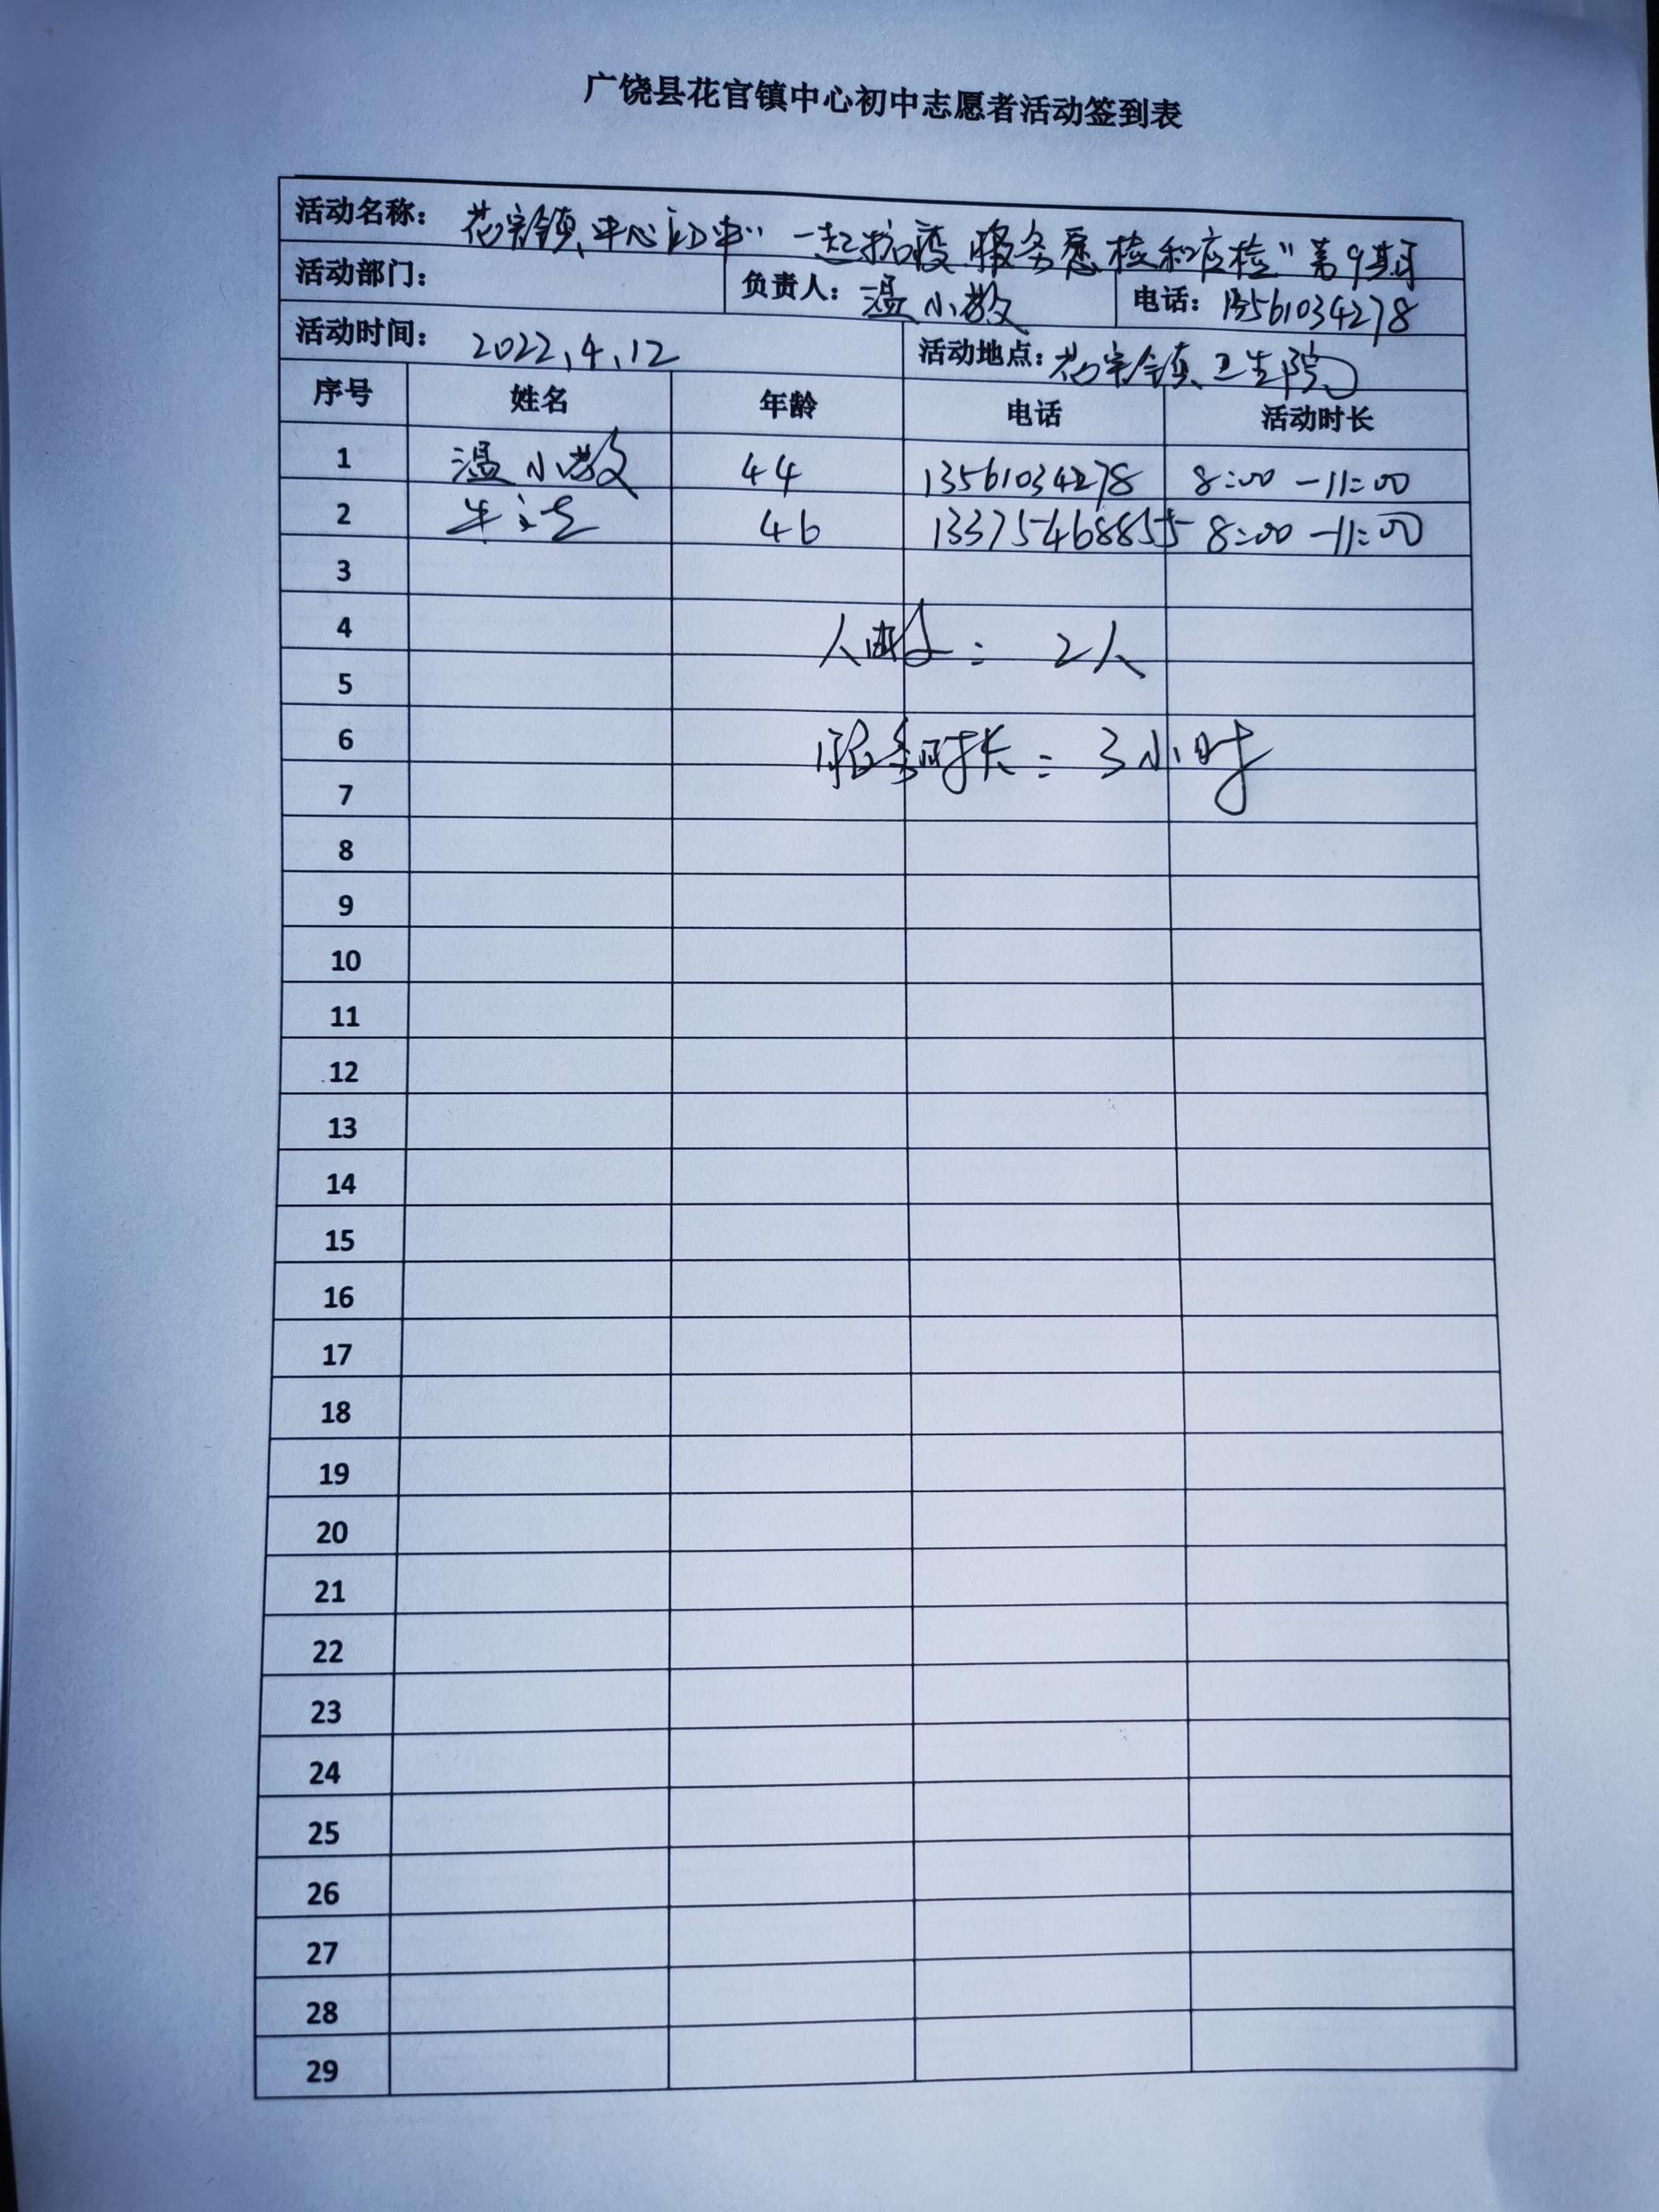 广饶县花官镇中心初中志愿者活动签到表
活动名称： 花官镇中心初中"一起抗疫 服务愿检和应检"第9期
活动部门： 负责人：温小教 电话：13561034278
活动时间： 2022,4,12 活动地点：花官镇卫生院
序号 姓名 年龄 电话 活动时长
1 温小教 44 13561034278 8:00 -11:00
2 46 13375468855 8:00 -11:00
3
4 人数： 2人
5
6 服务时长： 3小时
7
8
9
10
11
12
13
14
15
16
17
18
19
20
21
22
23
24
25
26
27
28
29